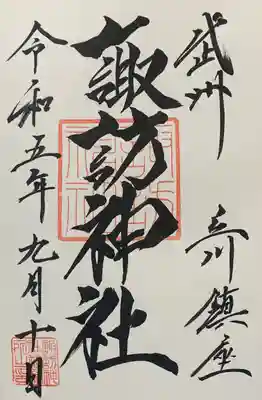 武州 立川 鎮座
諏訪神社
令和五年 九月十日